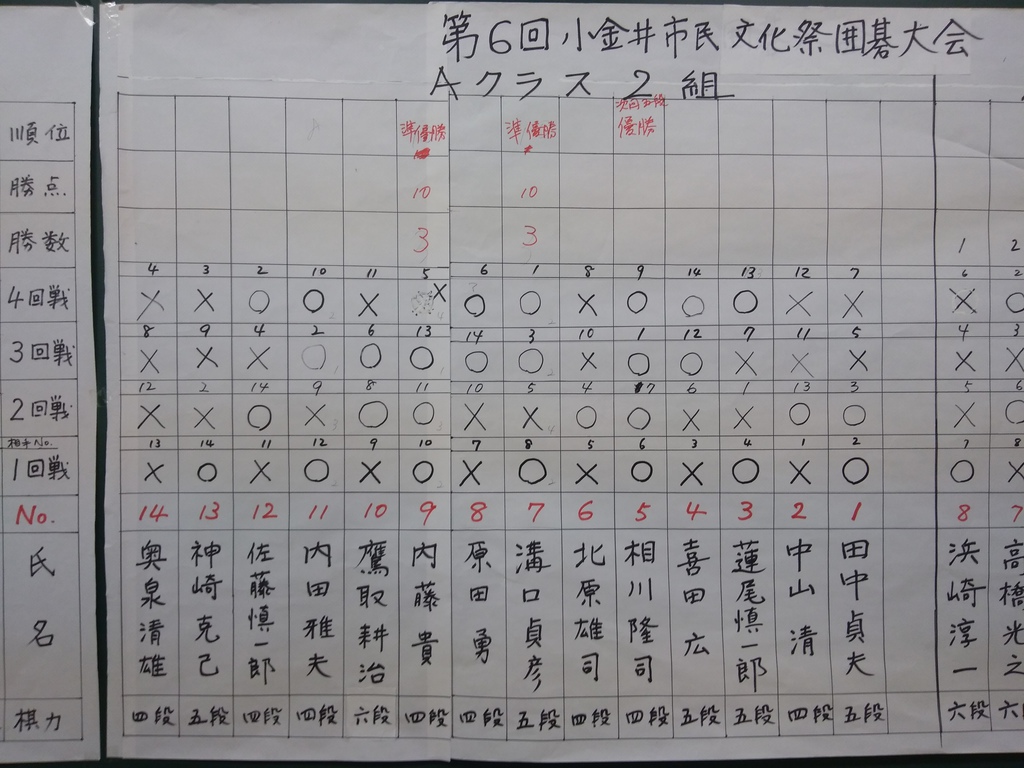 第6回小金井市民文化祭囲碁大会
Aクラス 2 組
順位 準優勝 準優勝 次回五段 優勝
勝点 10 10
勝数 3 3 1 2
4 3 2 10 11 5 6 1 8 9 14 13 12 7 6 2
4回戦 × × ○ ○ × × ○ ○ × ○ ○ ○ × × × ○
8 9 4 2 6 13 14 3 10 1 12 7 11 5 4 3
3回戦 × × × ○ ○ ○ ○ ○ × ○ ○ × × × × ×
12 2 14 9 8 11 10 5 4 7 6 1 13 3 5 6
2回戦 × × ○ × ○ ○ × × ○ ○ × × ○ ○ × ○
相手No. 13 14 11 12 9 10 7 8 5 6 3 4 1 2 7 8
1回戦 × ○ × ○ × ○ × ○ × ○ × ○ × ○ ○ ×
No. 14 13 12 11 10 9 8 7 6 5 4 3 2 1 8 7
氏名 奥泉清雄 神崎克己 佐藤慎一郎 内田雅夫 鷹取耕治 内藤貴 原田勇 溝口貞彦 北原雄司 相川隆司 喜田広 蓮尾慎一郎 中山清 田中貞夫 浜崎淳一 高橋光之
棋力 四段 五段 四段 四段 六段 四段 四段 五段 四段 四段 五段 五段 四段 五段 六段 六